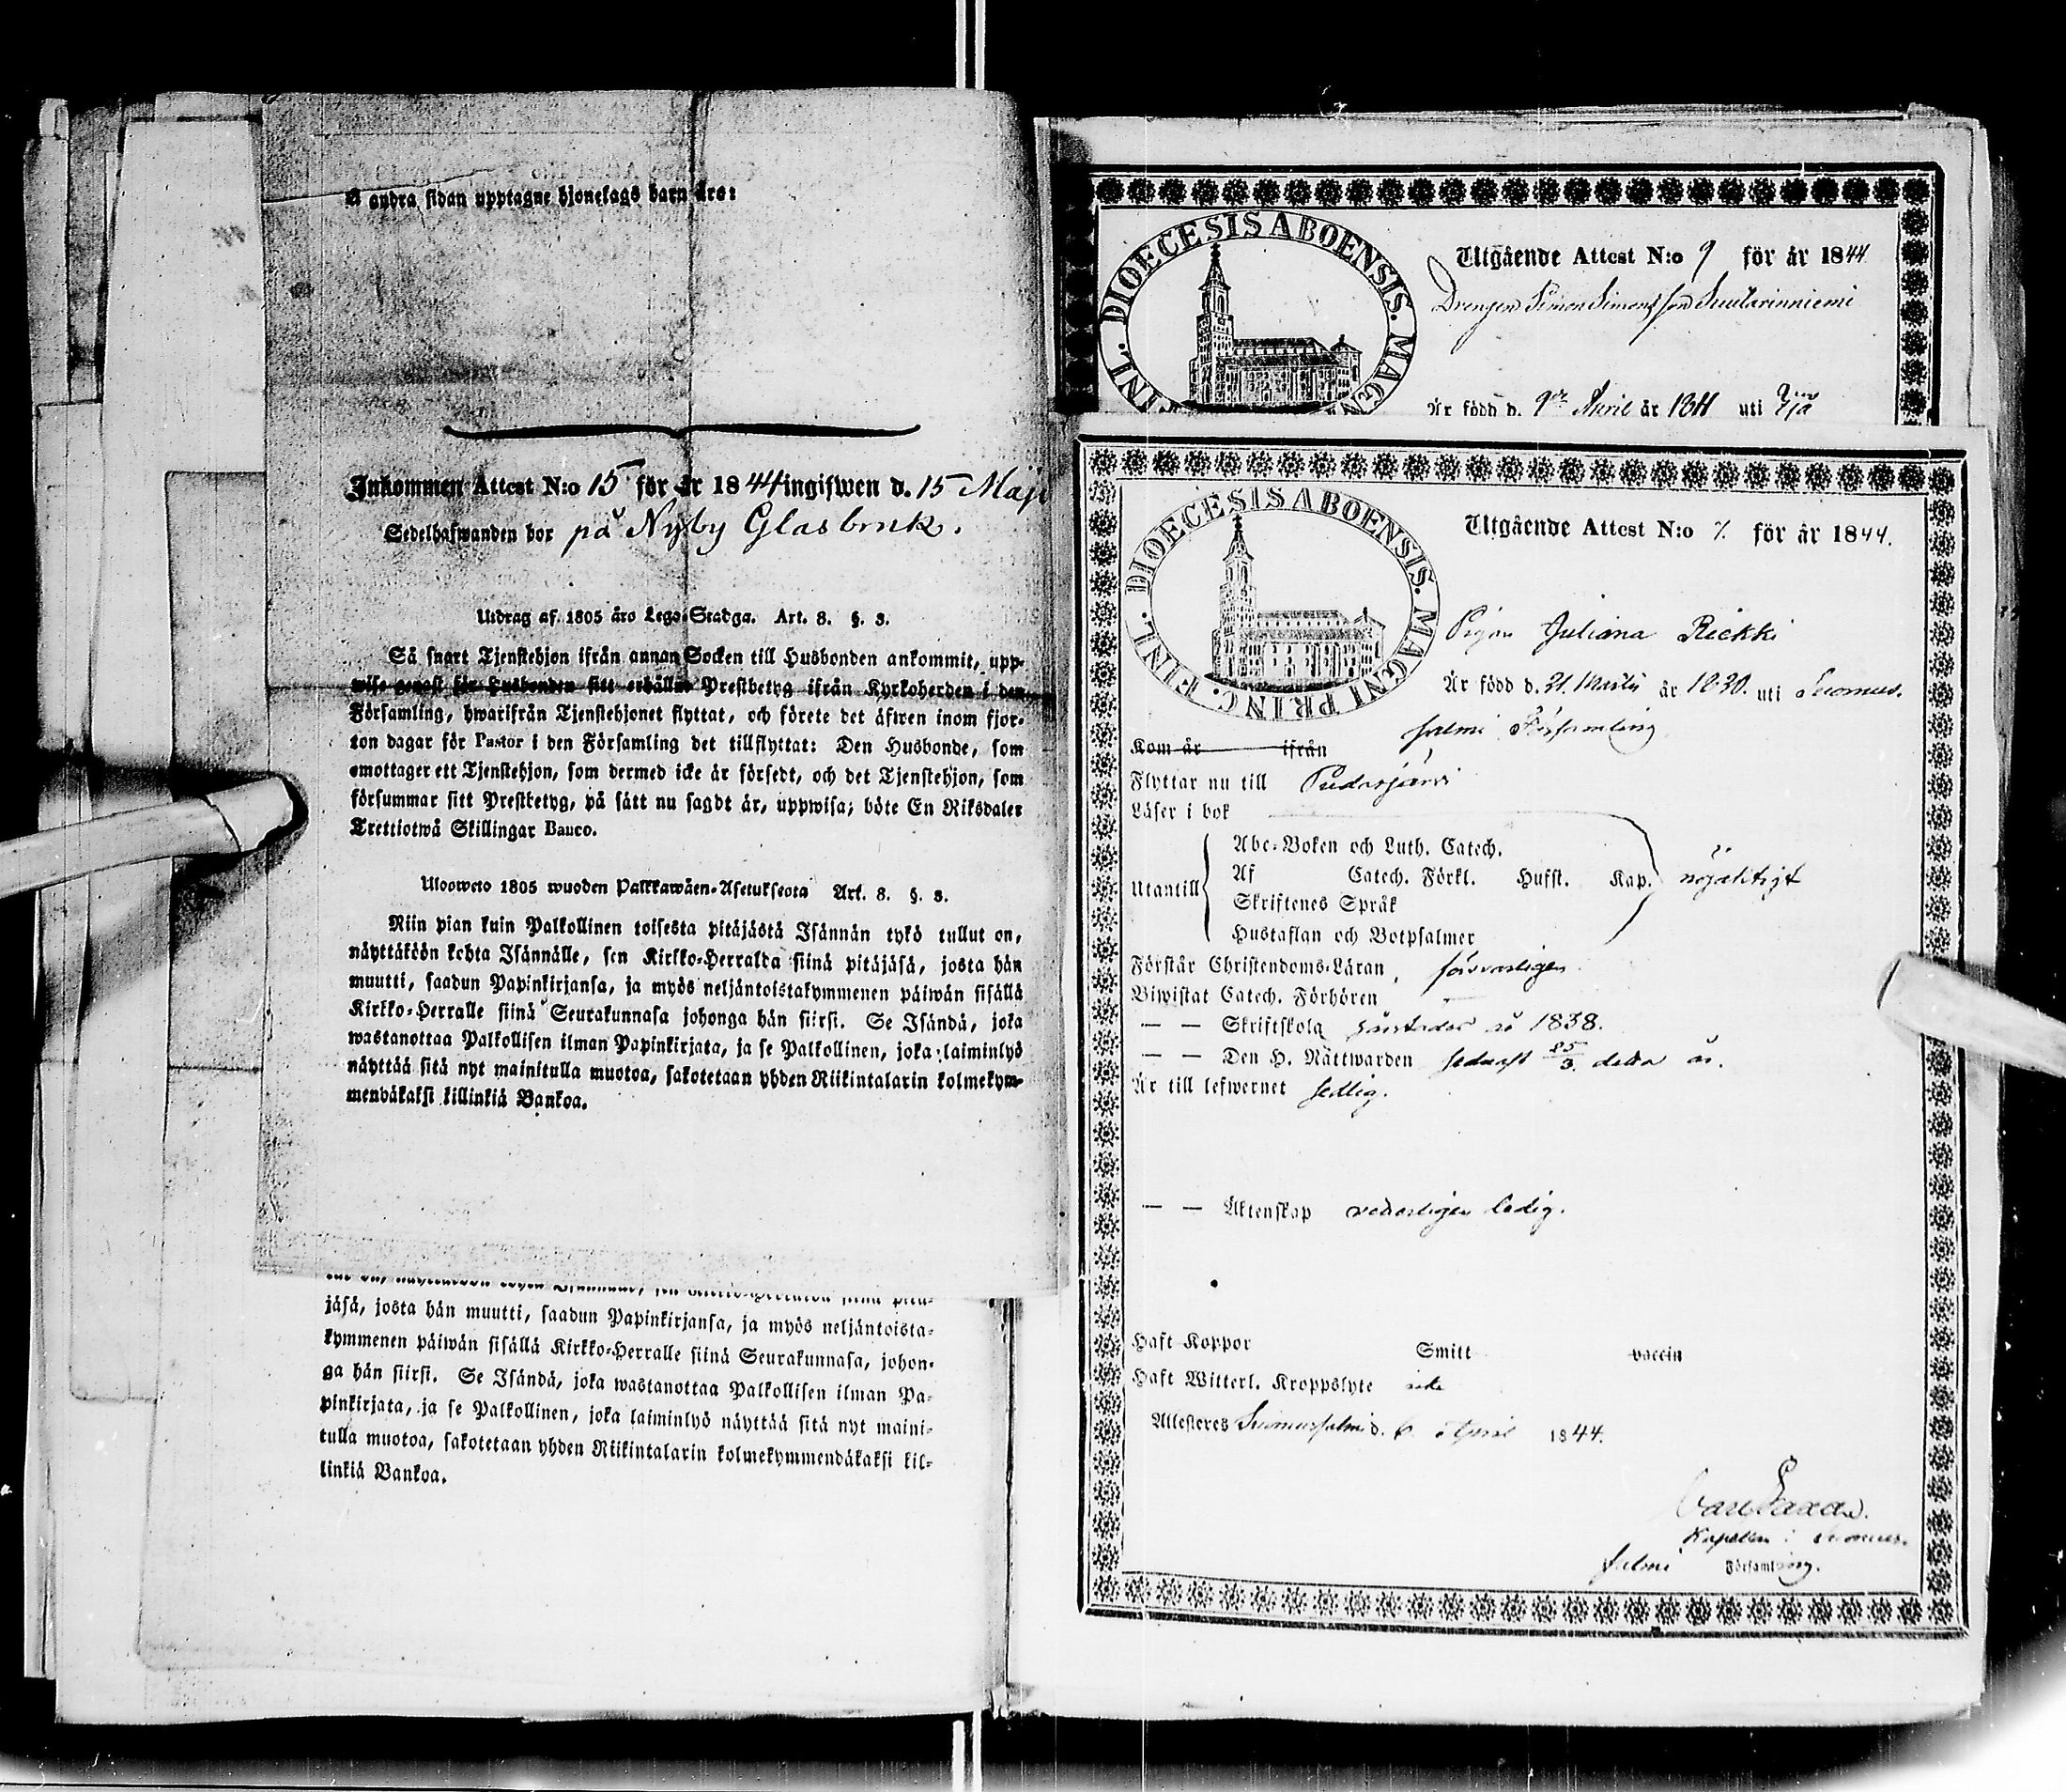 å andra sidan upptagne hjonelags barn äro:
Inkommen Attest N:o 15 för år 1844 ingifwen d. 15 Maji
Sedelhafwanden bor på Nyby Glasbruk.
Utdrag af 1805 års Lego-Stadga. Art. 8. §. 3.
Så snart Tjenstehjon ifrån annan Socken till Husbonden ankommit, upp-
wise genast för Husbonden sitt erhållne Prestbetyg ifrån Kyrkoherden i den
Församling, hwarifrån Tjenstehjonet flyttat, och förete det äfwen inom fjor-
ton dagar för Pastor i den Församling det tillflyttat: Den Husbonde, som
emottager ett Tjenstehjon, som dermed icke är försedt, och det Tjenstehjon, som
försummar sitt Prestbetyg, på sätt nu sagdt är, uppwisa; böte En Riksdaler
Trettiotwå Skillingar Banco.
Ulosweto 1805 wuoden Palkkawäen-Asetuksesta Art. 8. §. 3.
Niin pian kuin Palkollinen toisesta pitäjästä Isännän tykö tullut on,
näyttäköön kohta Isännälle, sen Kirkko-Herralda siinä pitäjäsä, josta hän
muutti, saadun Papinkirjansa, ja myös neljäntoistakymmenen päiwän sisällä
Kirkko-Herralle siinä Seurakunnasa johonga hän siirsi. Se Isändä, joka
wastanottaa Palkollisen ilman Papinkirjata, ja se Palkollinen, joka laiminlyö
näyttää sitä nyt mainitulla muotoa, sakotetaan yhden Riikintalarin kolmekym-
mendäkaksi killinkiä Bankoa.
jäsä, josta hän muutti, saadun Papinkirjansa, ja myös neljäntoista-
kymmenen päiwän sisällä Kirkko-Herralle siinä Seurakunnasa, johon-
ga hän siirsi. Se Isändä, joka wastanottaa Palkollisen ilman Pa-
pinkirjata, ja se Palkollinen, joka laiminlyö näyttää sitä nyt maini-
tulla muotoa, sakotetaan yhden Riikintalarin kolmekymmendäkaksi kil-
linkiä Bankoa.
DIOECESIS ABOENSIS. MAGNI
FINL.
Utgående Attest N:o 9 för år 1844
Drengen Simon Simonsson Suutarinniemi
Är född d. 9de April år 1811 uti
DIOECESIS ABOENSIS. MAGNI PRINC. FINL.
Utgående Attest N:o 7. för år 1844.
Pigan Juliana Riekki
Är född d. 21. Martii år 1820. uti Suomus-
salmi Församling
Kom år ifrån
Flyttar nu till Pudasjärvi
Läser i bok
Utantill
Abc-Boken och Luth. Catech.
Af Catech. Förkl. Hufst. Kap. nöjaktigt
Skriftenes Språk
Hustaflan och Botpsalmer
Förstår Christendoms-Läran försvarligen
Biwistat Catech. Förhören
— — Skriftskola år 1838.
— — Den H. Nattwarden sednast 25/3. detta år.
Är till lefwernet sedlig.
— — Äktenskap vederligen ledig.
Haft Koppor Smitt vaccin
Haft Witterl. Kroppslyte icke
Attesteres Suomussalmi d. 6. April 1844.
Carl Saxa
Kapellan i Suomus-
salmi Församling.